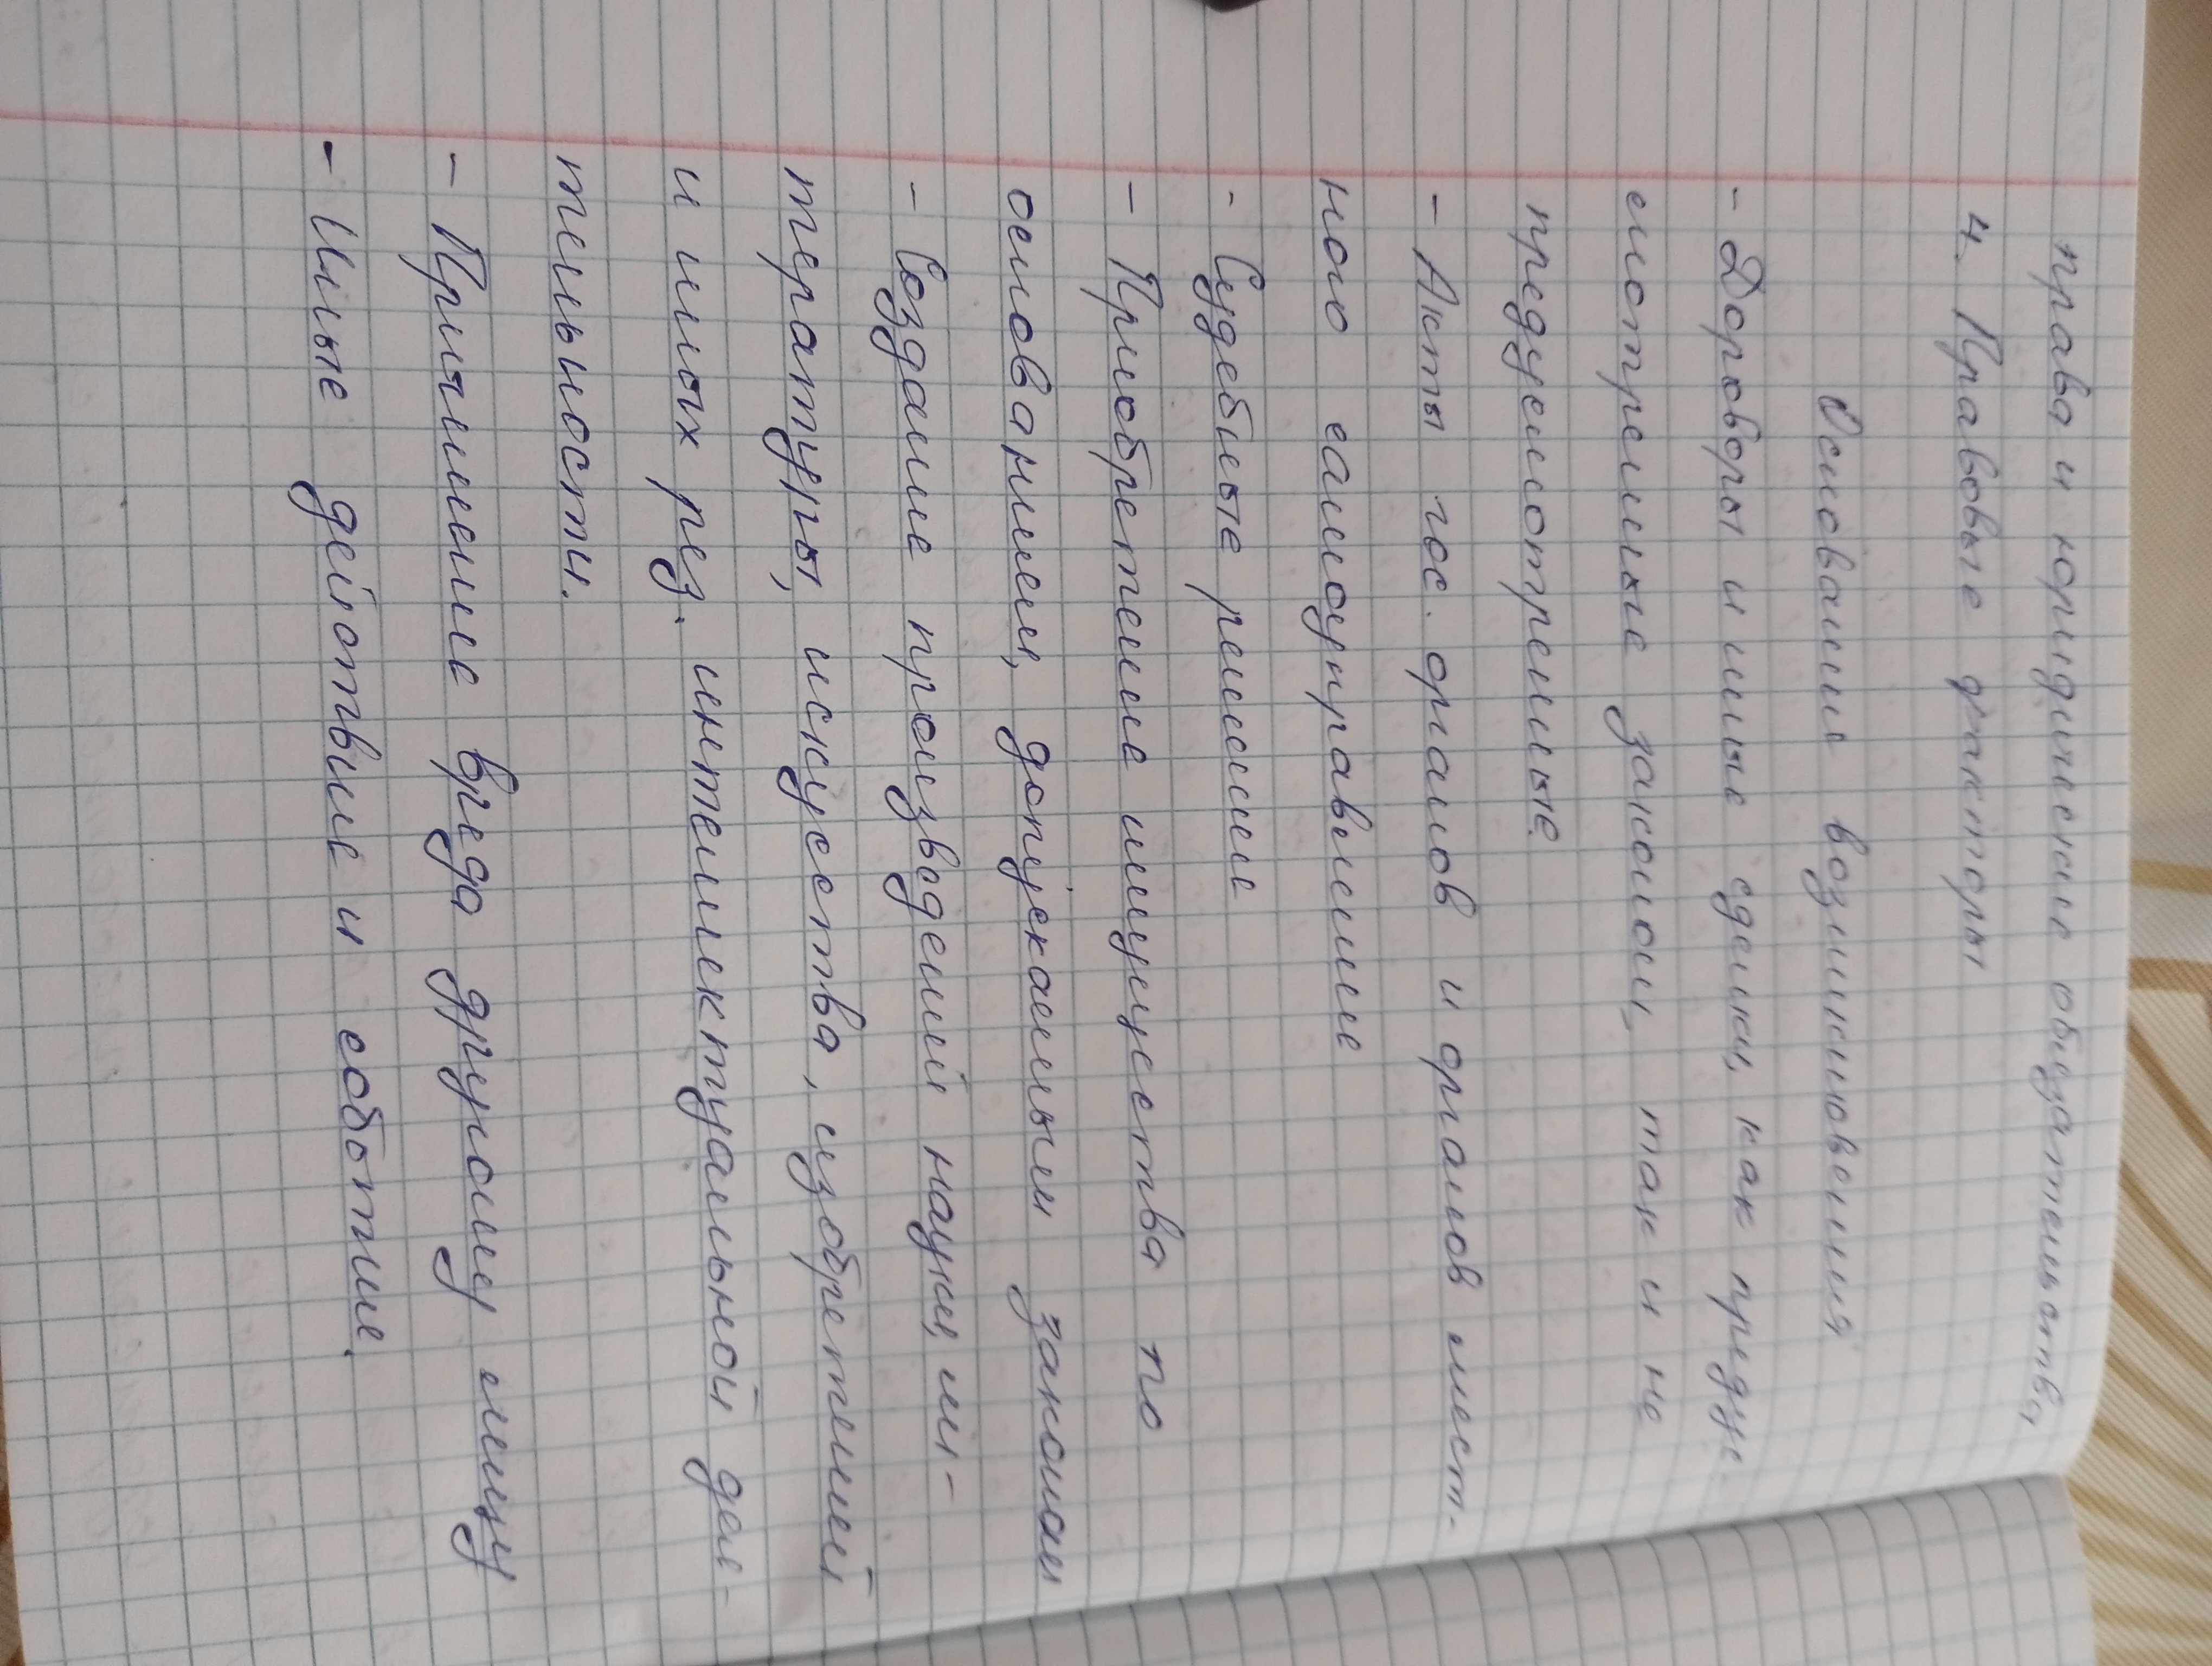 права и юридические обязательства
4. Правовые факторы
Основания возникновения
- Договоры и иные сделки, как предус-
смотренные законом, так и не
предусмотренные
- Акты гос. органов и органов мест-
ного самоуправление
- Судебные решение
- Приобретение имущества по
основанием, допускаемым законом
- Создание произведений науки, ли-
тературы, искусства, изобретений
и иных рез. интеллектуальной дея-
тельности.
- Причинение вреда другому лицу
- Иные действие и события.